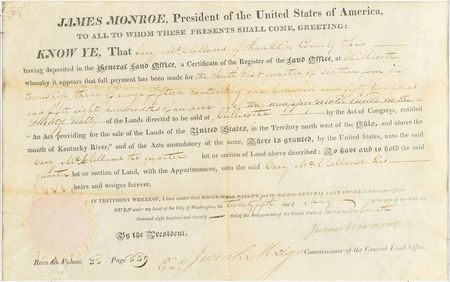 JAMES MONROE, President of the United States of America,
TO ALL TO WHOM THESE PRESENTS SHALL COME, GREETING:
KNOW YE, That Cary McClelland of Franklin County Ohio
having deposited in the General Land Office, a Certificate of the Register of the Land Office, at Chillicothe
whereby it appears that full payment has been made for the South West quarter of section four in
township three of range fifteen containing one hundred and fifty two acres
and fifty eight hundredths of an acre of the unappropriated lands in the
Military of the Lands directed to be sold at Chillicothe by the Act of Congress, entitled
"An Act providing for the sale of the Lands of the United States, in the Territory north west of the Ohio, and above the
mouth of Kentucky River," and of the Acts amendatory of the same, There is granted, by the United States, unto the said
Cary McClelland the quarter lot or section of Land above described: To have and to hold the said
quarter lot or section of Land, with the Appurtenances, unto the said Cary McClelland his
heirs and assigns forever.
IN TESTIMONY WHEREOF, I have caused these Letters to be made PATENT, and the Seal of the GENERAL LAND OFFICE to be hereunto affixed.
GIVEN under my hand at the City of Washington, the twenty fifth day of May in the year of our Lord one
thousand eight hundred and twenty and of the Independence of the United States of America the forty fourth
By the President, James Monroe
Josiah Meigs Commissioner of the General Land Office.
Recorded Volume Page 559